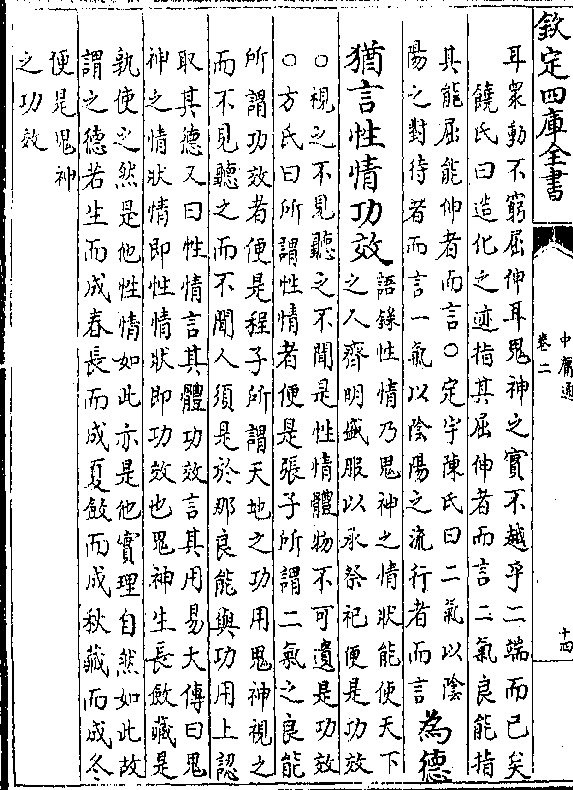 欽定四庫全書
中庸通
卷二
十四
耳衆動不窮屈伸耳鬼神之實不越乎二端而已矣
饒氏曰造化之迹指其屈伸者而言二氣良能指
其能屈能伸者而言○定宇陳氏曰二氣以陰
陽之對待者而言一氣以陰陽之流行者而言
為德
猶言性情功效
語錄性情乃鬼神之情狀能使天下
之人齊明盛服以承祭祀便是功效
○視之不見聽之不聞是性情體物不可遺是功效
○方氏曰所謂性情者便是張子所謂二氣之良能
所謂功效者便是程子所謂天地之功用鬼神視之
而不見聽之而不聞人須是於那良能與功用上認
取其德又曰性情言其體功效言其用易大傳曰鬼
神之情狀情即性情狀即功效也鬼神生長斂藏是
孰使之然是他性情如此亦是他實理自然如此故
謂之德若生而成春長而成夏斂而成秋藏而成冬
便是鬼神
之功效